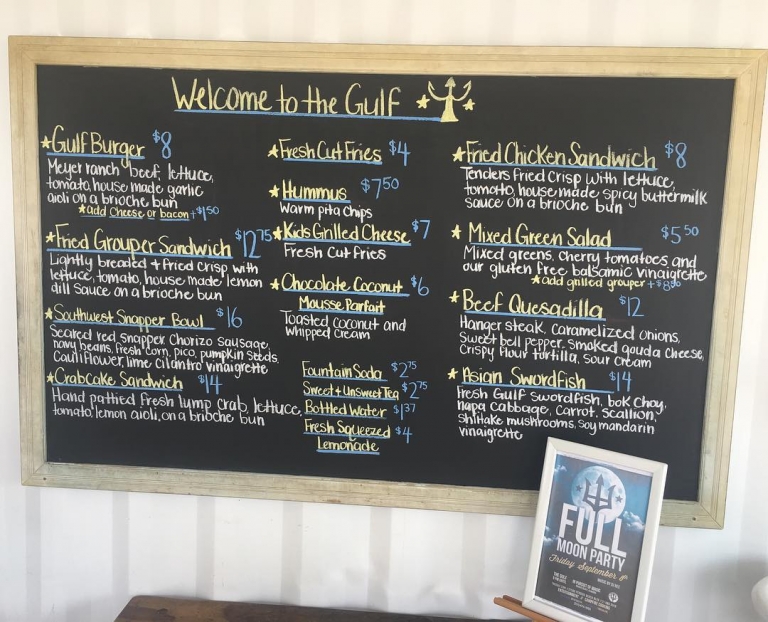 Welcome to the Gulf
★Gulf Burger $8
Meyer ranch beef, lettuce,
tomato, house made garlic
aioli on a brioche bun
★add cheese or bacon +$1.50
★Fried Grouper Sandwich $12.75
Lightly breaded + fried crisp with
lettuce, tomato, house made lemon
dill sauce on a brioche bun
★Southwest Snapper Bowl $16
Seared red snapper, chorizo sausage,
navy beans, fresh corn, pico, pumpkin seeds,
cauliflower, lime cilantro vinaigrette
★Crabcake Sandwich $14
Hand pattied fresh lump crab, lettuce,
tomato, lemon aioli, on a brioche bun
★Fresh Cut Fries $4
★Hummus $7.50
Warm pita chips
★Kids Grilled Cheese $7
Fresh cut fries
★Chocolate Coconut $6
Mousse Parfait
Toasted coconut and
whipped cream
Fountain Soda $2.75
Sweet + Unsweet Tea $2.75
Bottled Water $1.37
Fresh Squeezed $4
Lemonade
★Fried Chicken Sandwich $8
Tenders fried crisp with lettuce,
tomato, house made spicy buttermilk
sauce on a brioche bun
★Mixed Green Salad $5.50
Mixed greens, cherry tomatoes, and
our gluten free balsamic vinaigrette
★add grilled grouper +$8.50
★Beef Quesadilla $12
Hanger steak, caramelized onions,
sweet bell pepper, smoked gouda cheese,
crispy flour tortilla, sour cream
★Asian Swordfish $14
Fresh Gulf swordfish, bok choy,
napa cabbage, carrot, scallion,
shiitake mushrooms, soy mandarin
vinaigrette
FULL
MOON PARTY
Friday September 8th